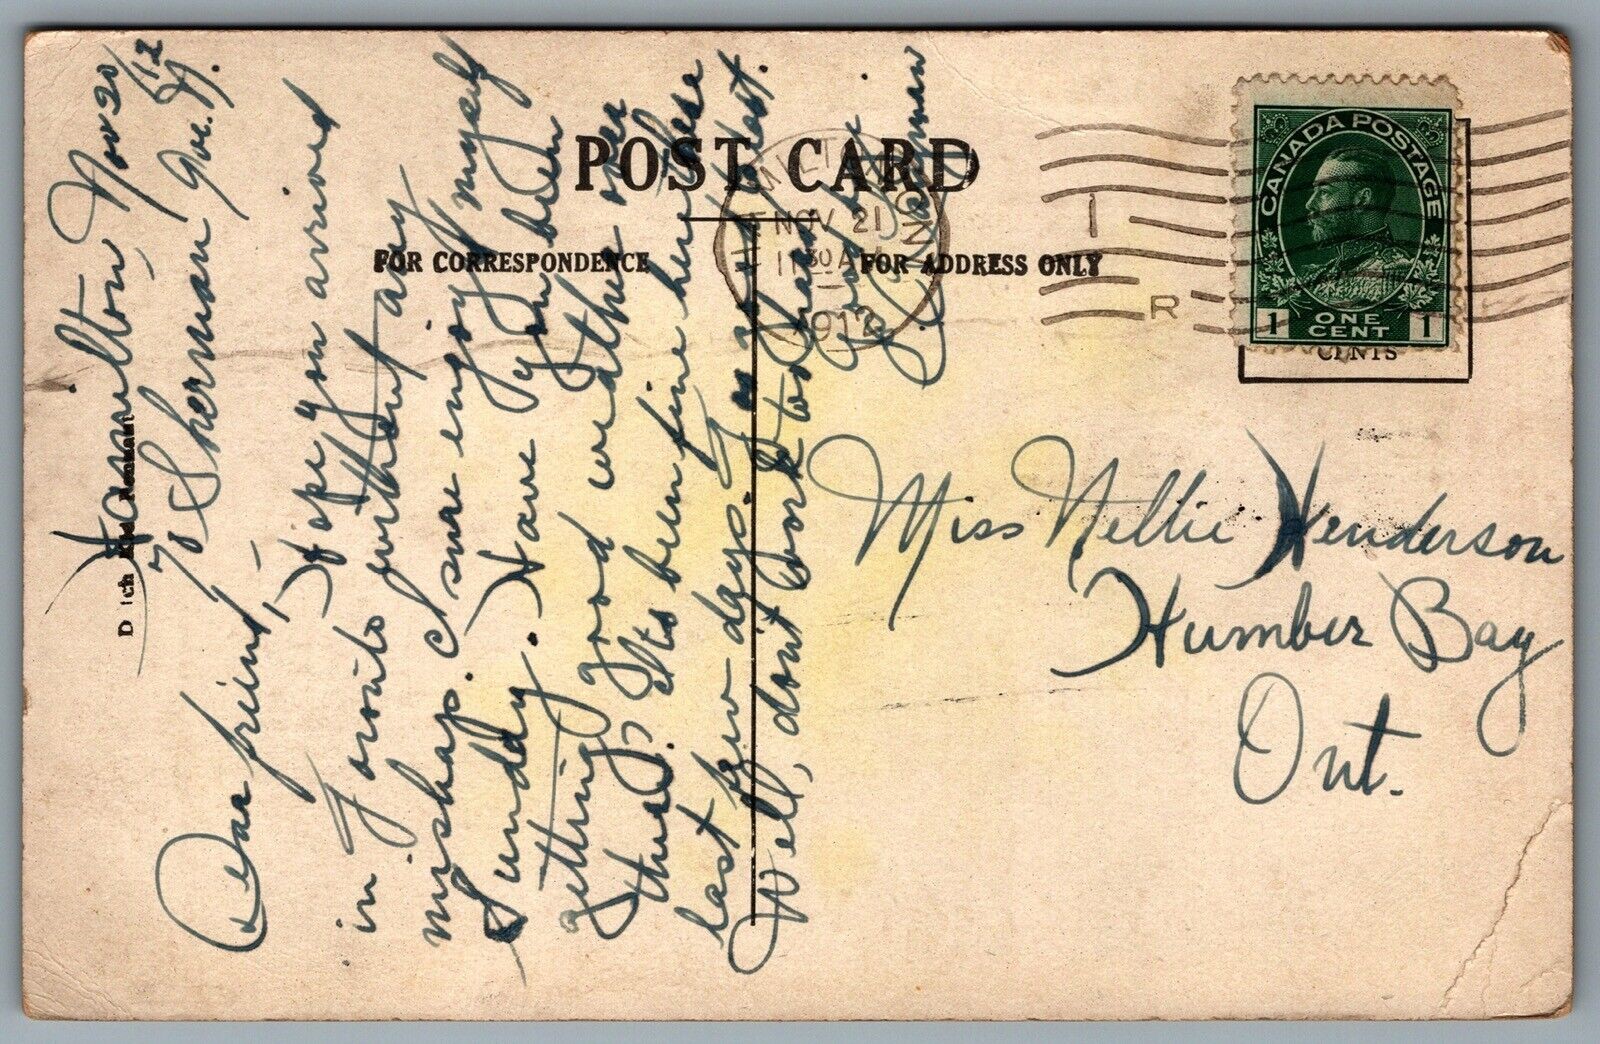 POST CARD
FOR CORRESPONDENCE
FOR ADDRESS ONLY
HAMILTON
NOV 21
11 30 A
1912
ONT
1
R
CANADA POSTAGE
1 ONE CENT 1
CENTS
Hamilton, Nov 20/12
78 Sherman Ave. N.
Dear friend,
Hope you arrived
in Toronto without any
mishap. I sure enjoy myself
Sunday. Have you been
getting good weather over
there? Its been fine here these
last few days.
Well, dont work to hard
Good bye
Miss Nellie Henderson
Humber Bay
Ont.